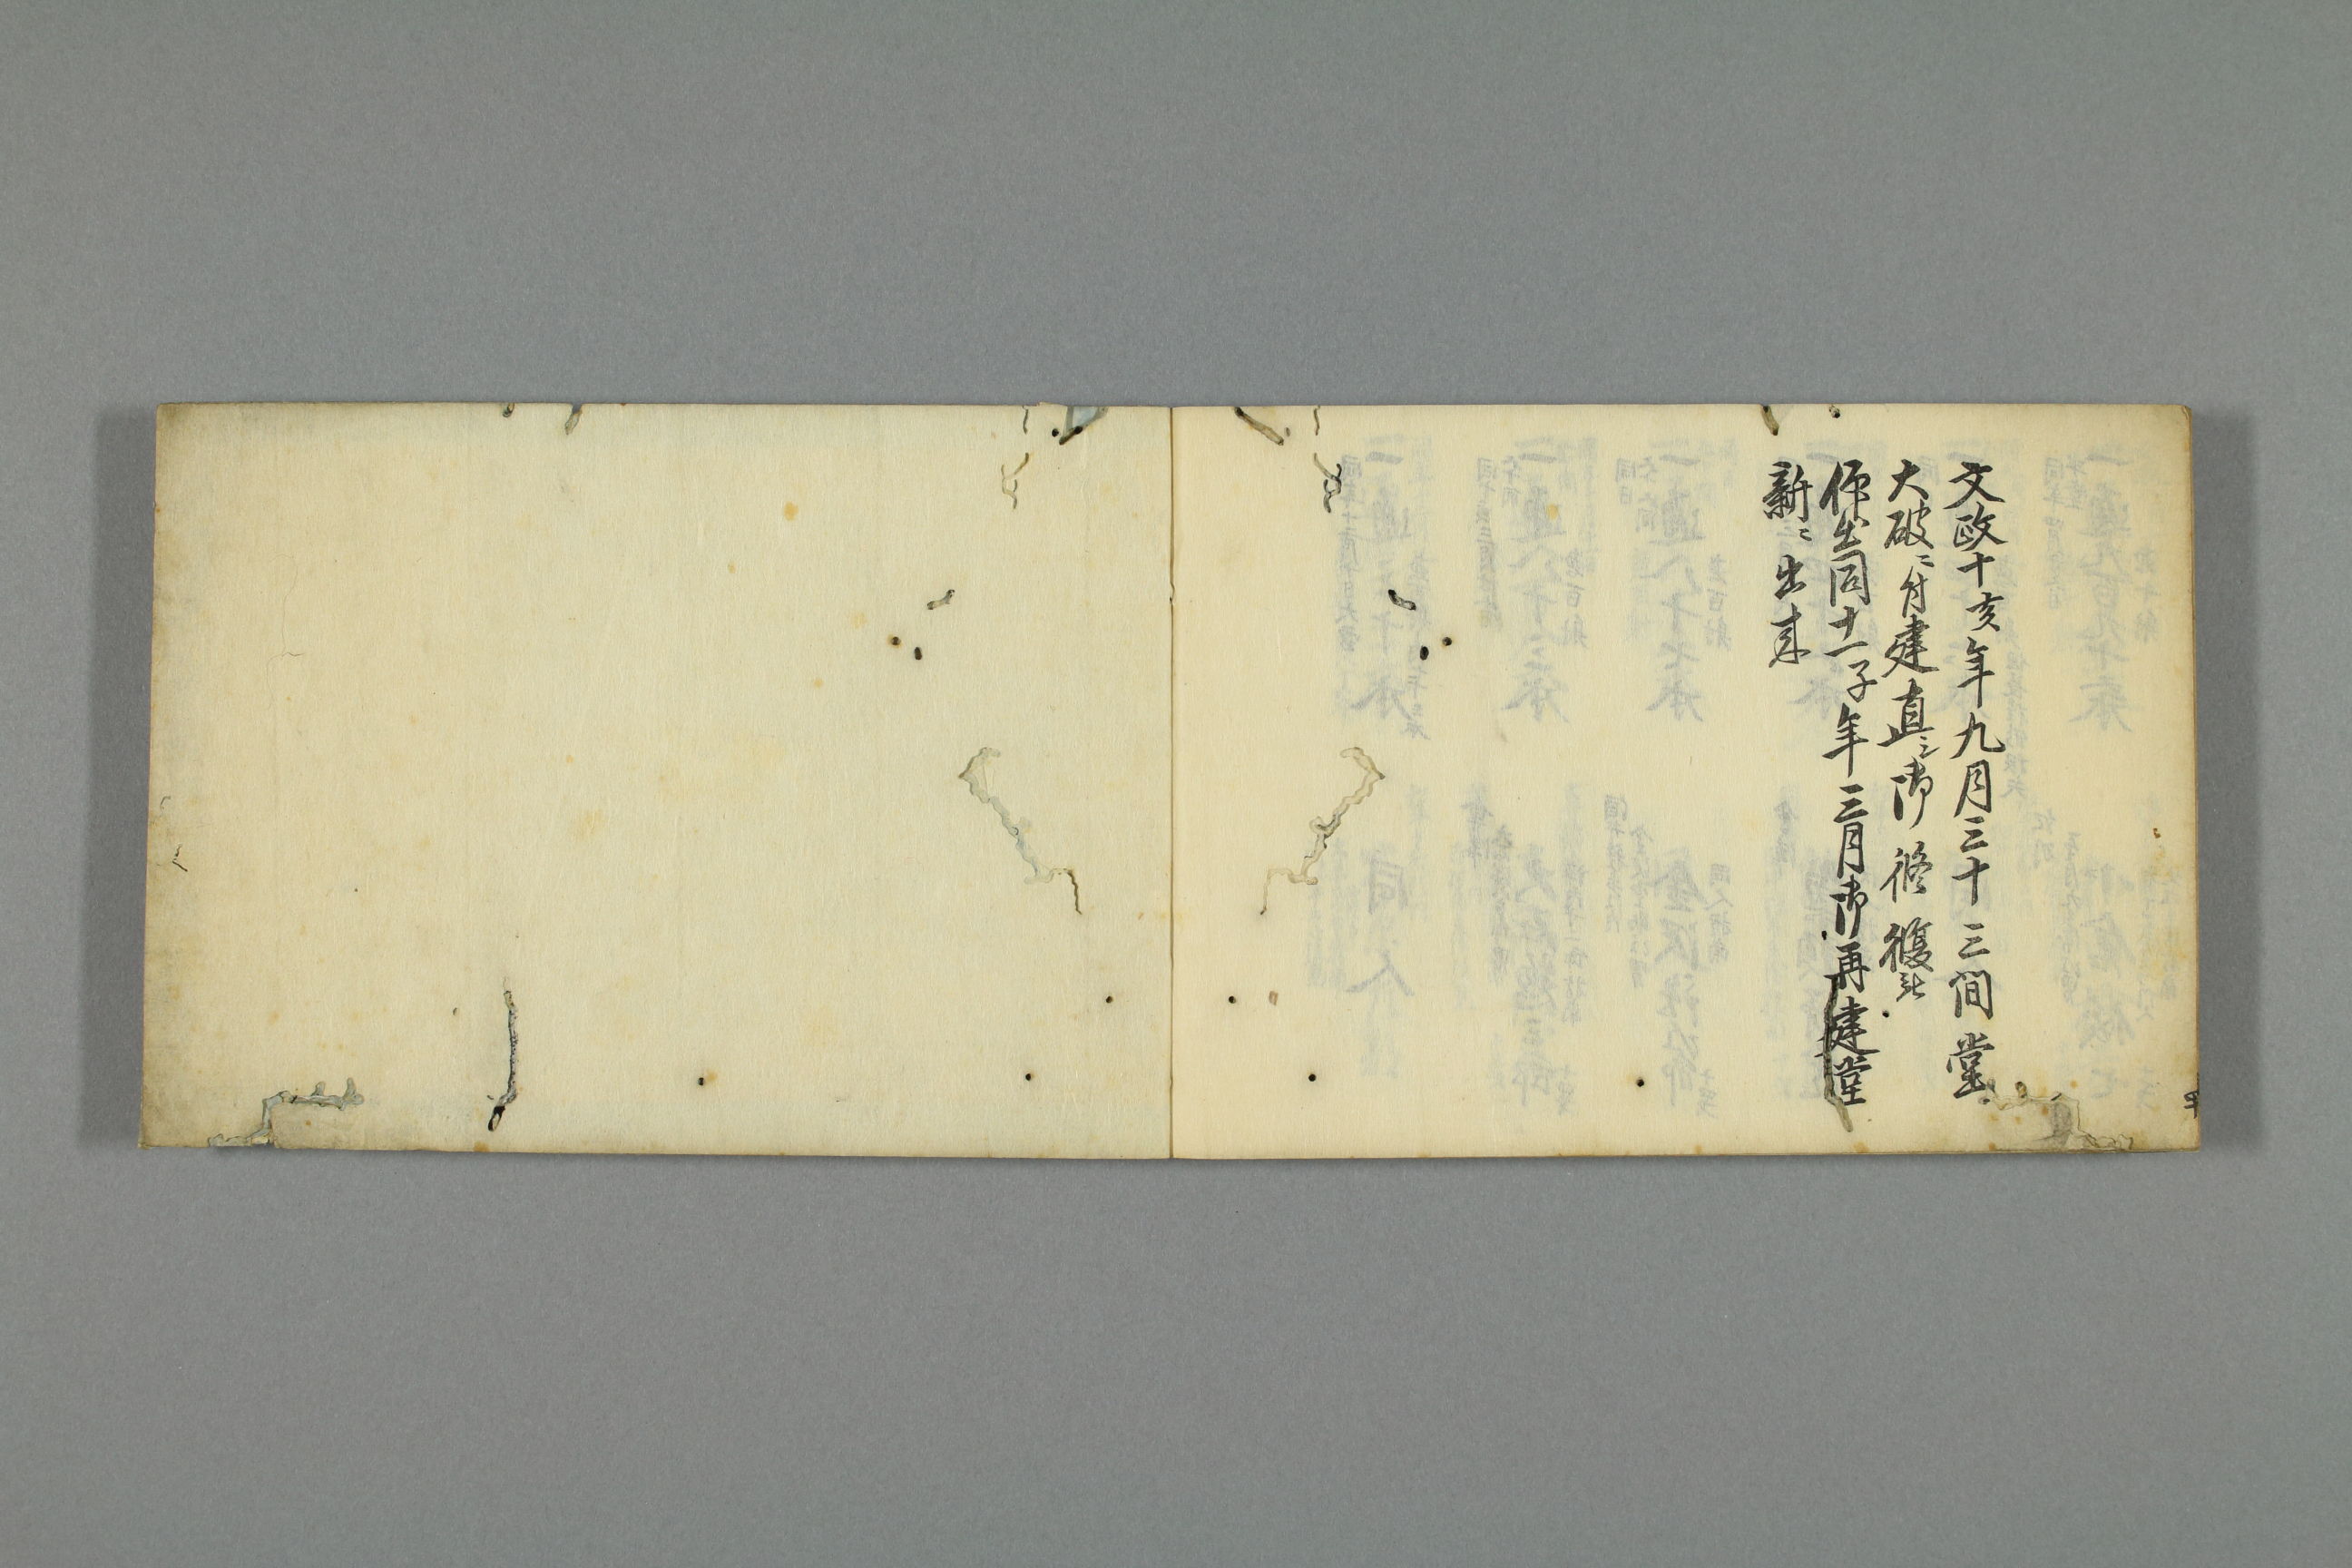 文政十亥年九月三十三間堂
大破ニ付建直シ御修覆被
仰出同十一子年三月御再建堂
新ニ出来